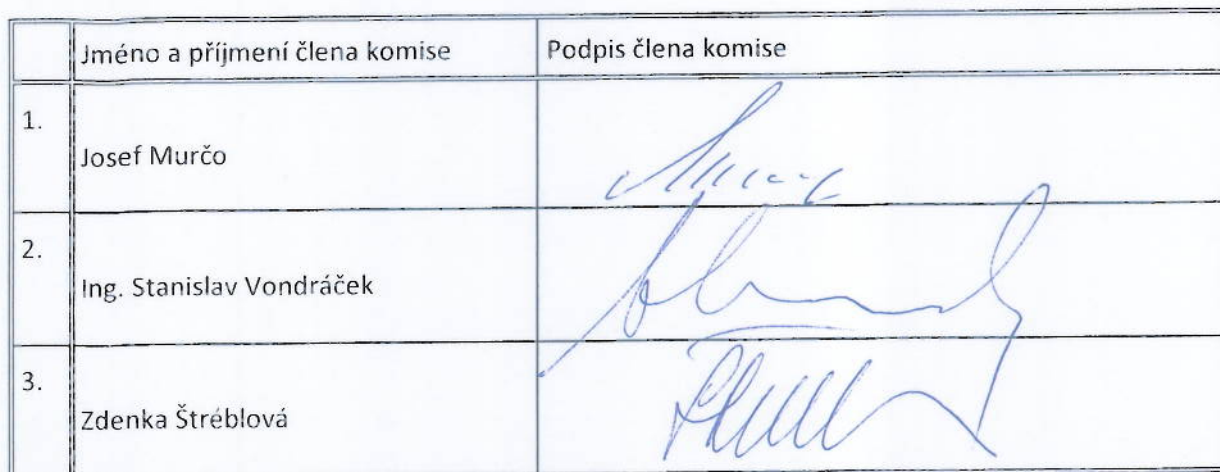 Jméno a příjmení člena komise Podpis člena komise
1.
Josef Murčo
2.
Ing. Stanislav Vondráček
3.
Zdenka Štréblová